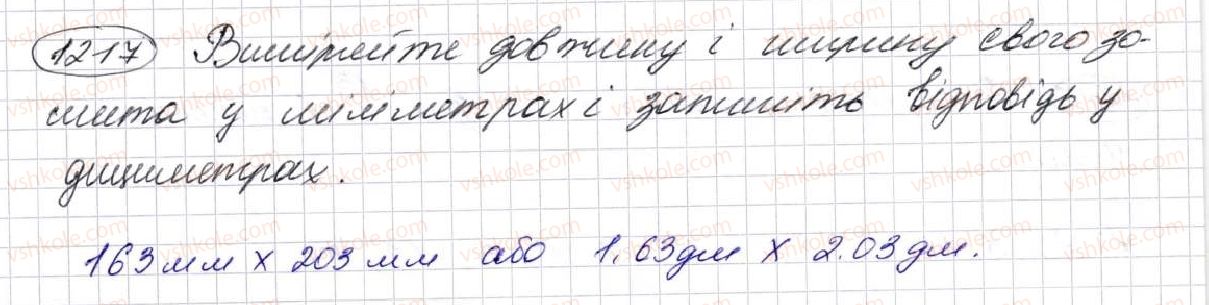 1217 Виміряйте довжину і ширину свого зо-
шита у міліметрах і запишіть відповідь у
дициметрах.
163 мм х 203 мм або 1.63 дм х 2.03 дм.